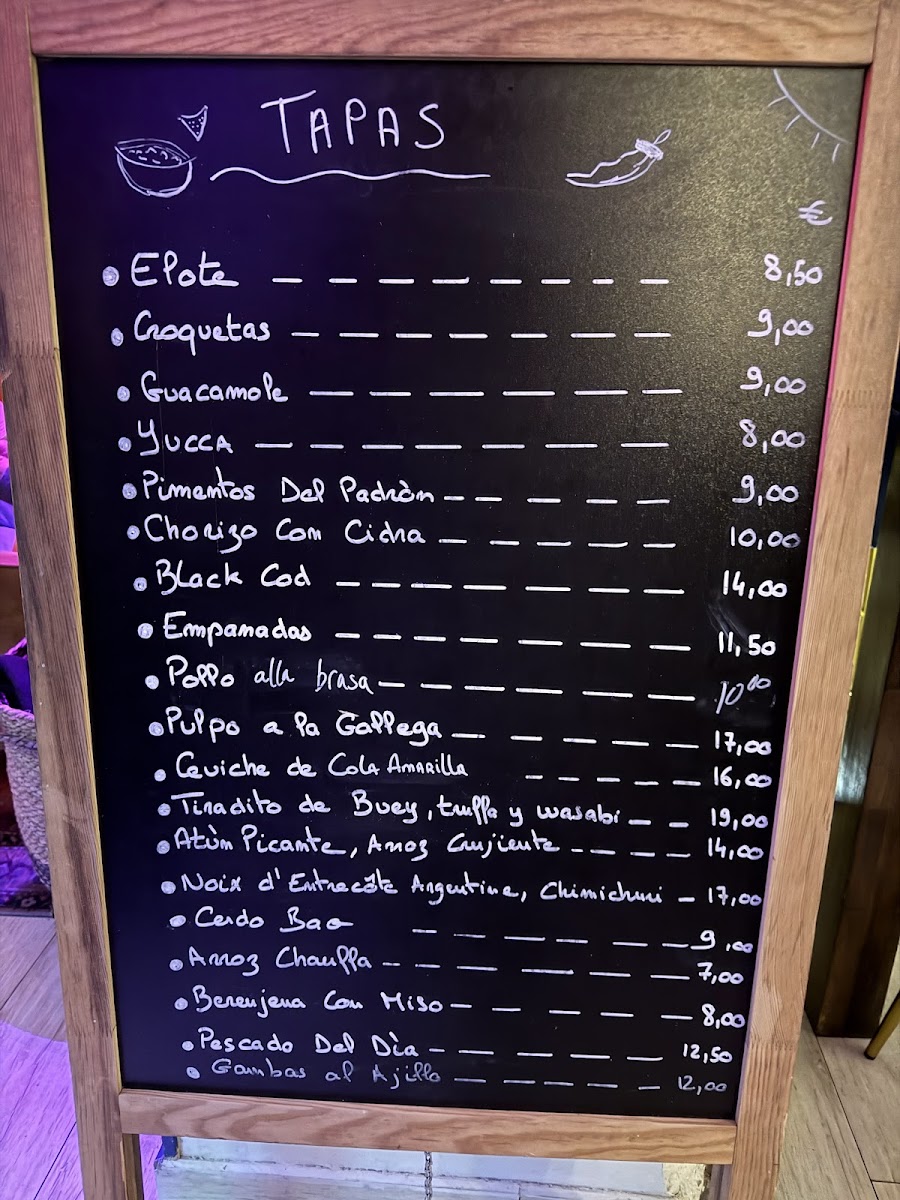 TAPAS
€
Elote 8,50
Croquetas 9,00
Guacamole 9,00
YUCCA 8,00
Pimentos Del Padròn 9,00
Chorizo Con Cidra 10,00
Black Cod 14,00
Empanadas 11,50
Pollo alla brasa 10,00
Pulpo a la Gallega 17,00
Ceviche de Cola Amarilla 16,00
Tiradito de Buey, truffa y wasabi 19,00
Atùn Picante, Arroz Crujiente 14,00
Noix d'Entrecôte Argentine, Chimichuri 17,00
Cerdo Bao 9,00
Arroz Chauffa 7,00
Berenjena Con Miso 8,00
Pescado Del Dìa 12,50
Gambas al Ajillo 12,00